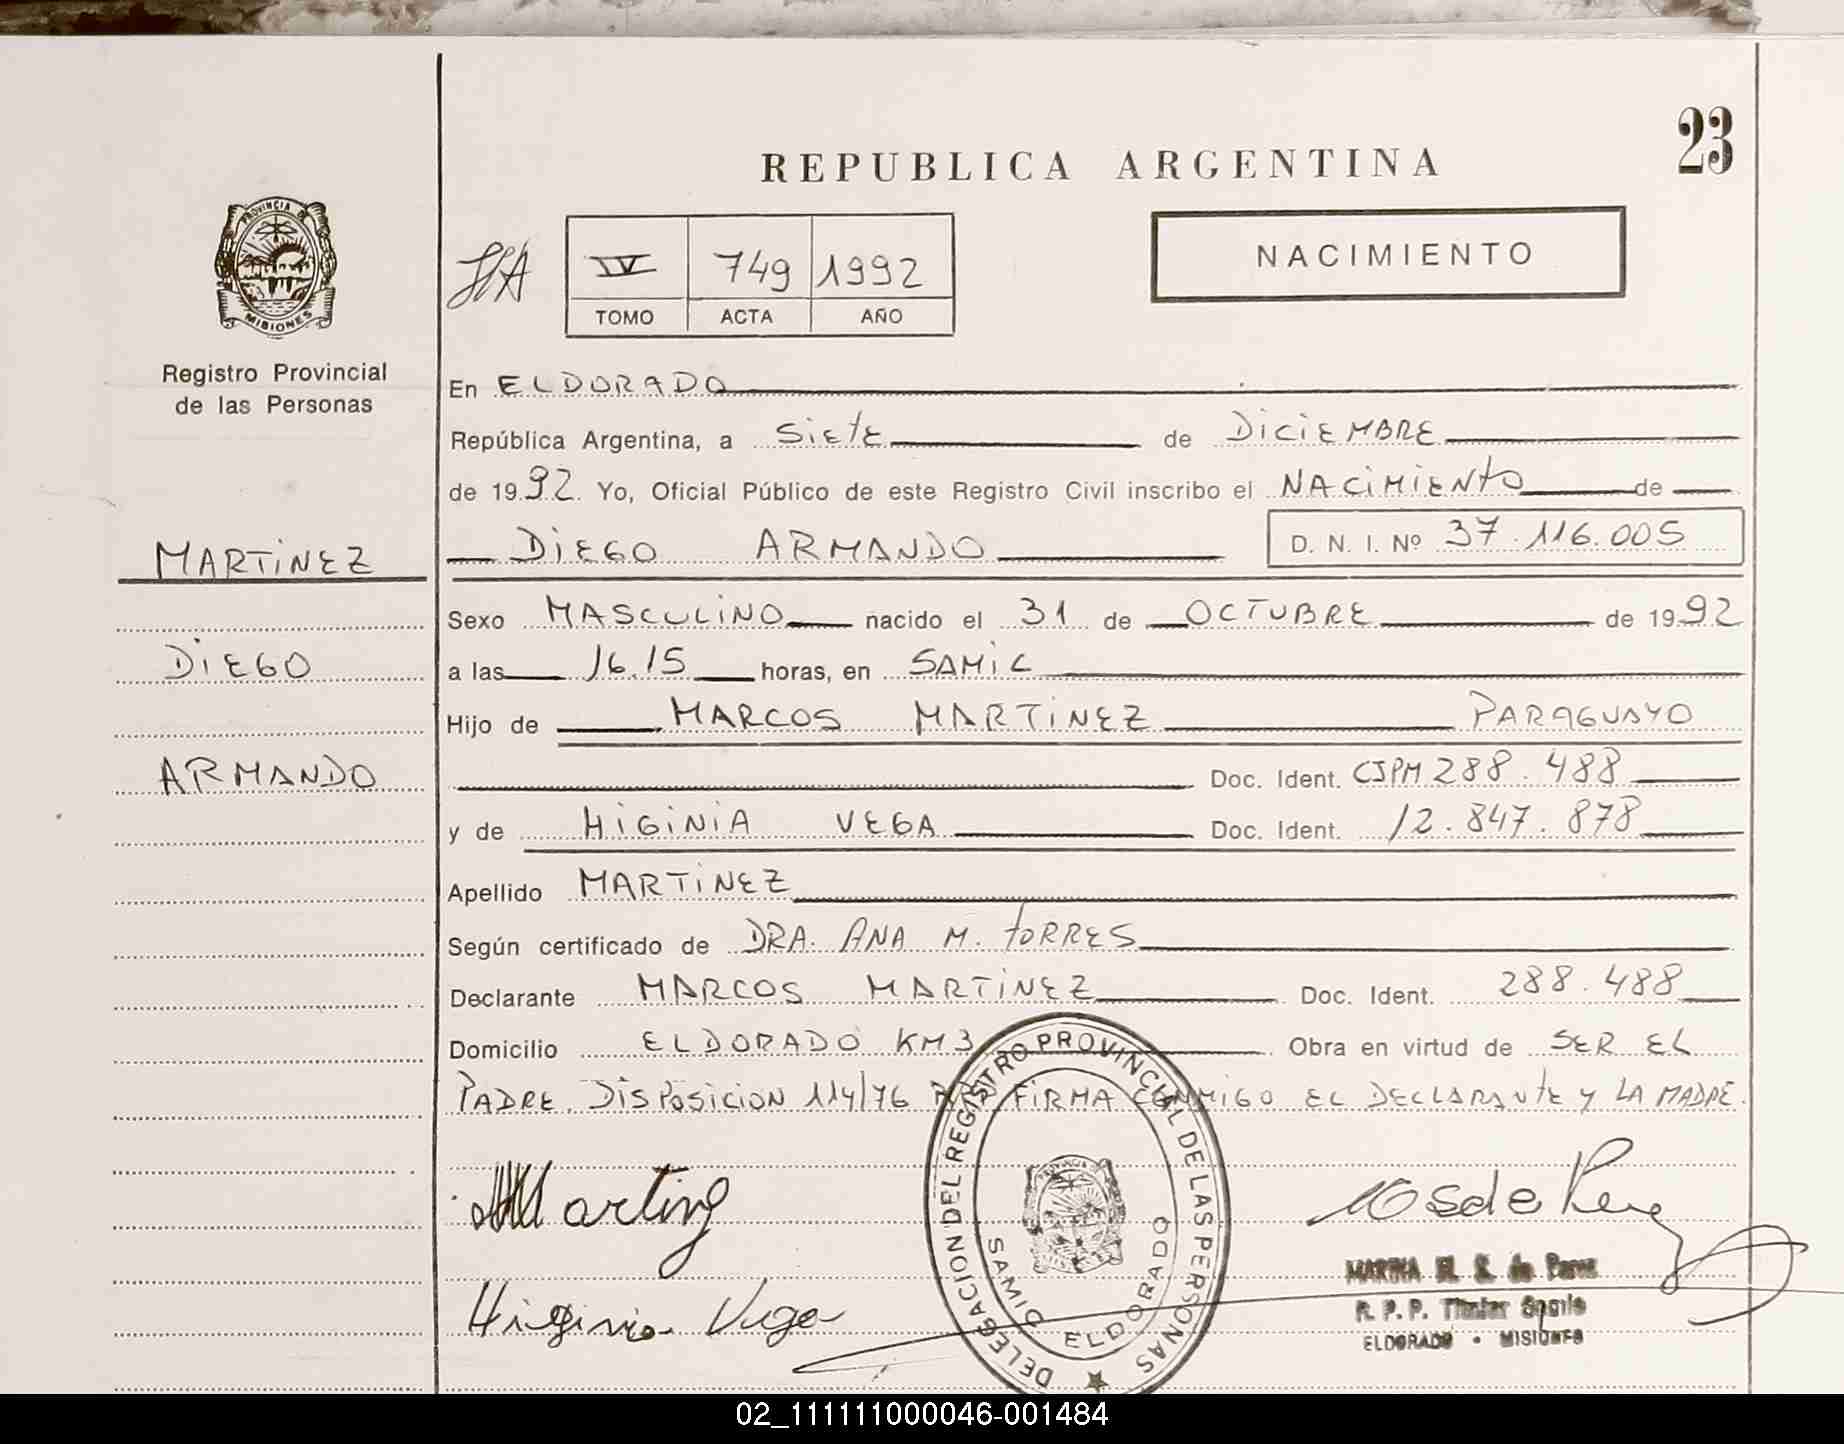 23
REPUBLICA ARGENTINA
PROVINCIA DE
MISIONES
Registro Provincial
de las Personas
NACIMIENTO
IV 749 1992
TOMO ACTA AÑO
En ELDORADO
República Argentina, a Siete de DICIEMBRE
de 1992. Yo, Oficial Público de este Registro Civil inscribo el NACIMIENTO de
MARTINEZ
DIEGO ARMANDO D. N. I. Nº 37.116.005
Sexo MASCULINO nacido el 31 de OCTUBRE de 1992
DIEGO
a las 16.15 horas, en SAMIC
Hijo de MARCOS MARTINEZ PARAGUAYO
ARMANDO
Doc. Ident. CIPM 288.488
y de HIGINIA VEGA Doc. Ident. 12.847.878
Apellido MARTINEZ
Según certificado de DRA. ANA M. TORRES
Declarante MARCOS MARTINEZ Doc. Ident. 288.488
Domicilio ELDORADO KM3 Obra en virtud de SER EL
PADRE. DISPOSICION 114/76 FIRMA CONMIGO EL DECLARANTE Y LA MADRE.
DELEGACION DEL REGISTRO PROVINCIAL DE LAS PERSONAS
SAMIC ELDORADO
Higinia Vega
MARINA de Perez
R. P. P. Titular
ELDORADO - MISIONES
02_111111000046-001484